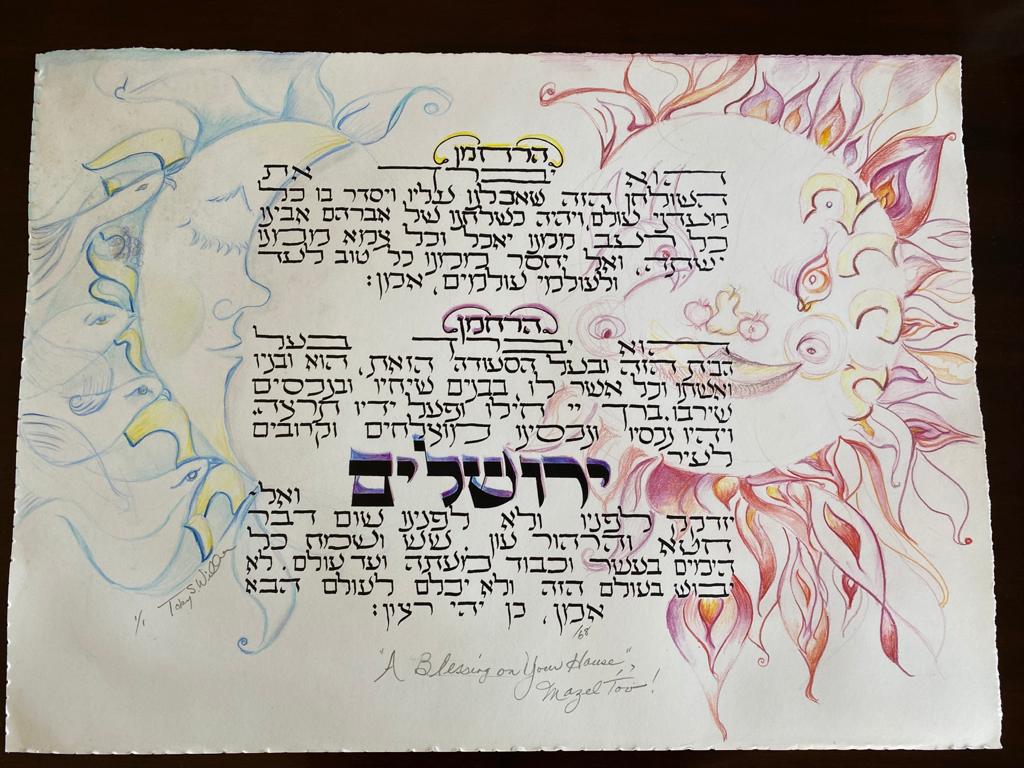 הרחמן
הוא יברך את
השולחן הזה שאכלנו עליו ויסדר בו כל
מעדני עולם, ויהיה כשלחנו של אברהם אבינו
כל רעב ממנו יאכל וכל צמא ממנו
ישתה, ואל יחסר ממנו כל טוב לעד
ולעולמי עולמים, אמן:
הרחמן
הוא יברך בעל
הבית הזה ובעל הסעודה הזאת, הוא ובניו
ואשתו וכל אשר לו, בבנים שיחיו ובנכסים
שירבו. ברך יי חילו ופעל ידיו תרצה:
ויהיו נכסיו ונכסינו מוצלחים וקרובים
לעיר
ירושלים
ואל
יזדקק לפניו ולא לפנינו שום דבר
חטא והרהור עון, שש ושמח כל
הימים בעשר וכבוד מעתה ועד עולם לא
יבוש בעולם הזה ולא יכלם לעולם הבא
אמן, כן יהי רצון:
1/1 Toby S. Willner
/68
"A Blessing on Your House",
Mazel Tov!